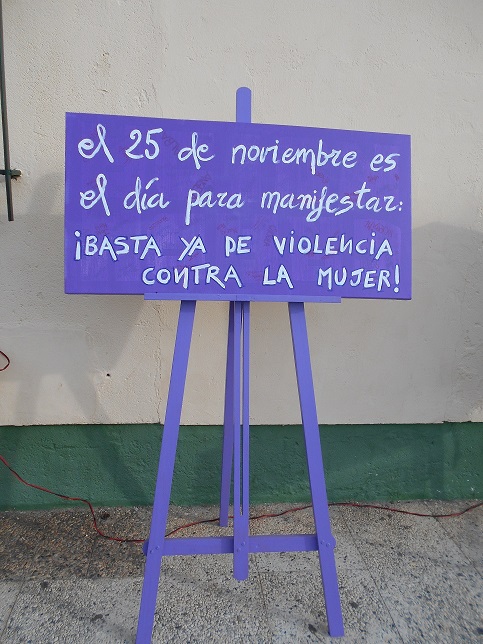 el 25 de noviembre es
el día para manifestar:
¡BASTA YA DE VIOLENCIA
CONTRA LA MUJER!